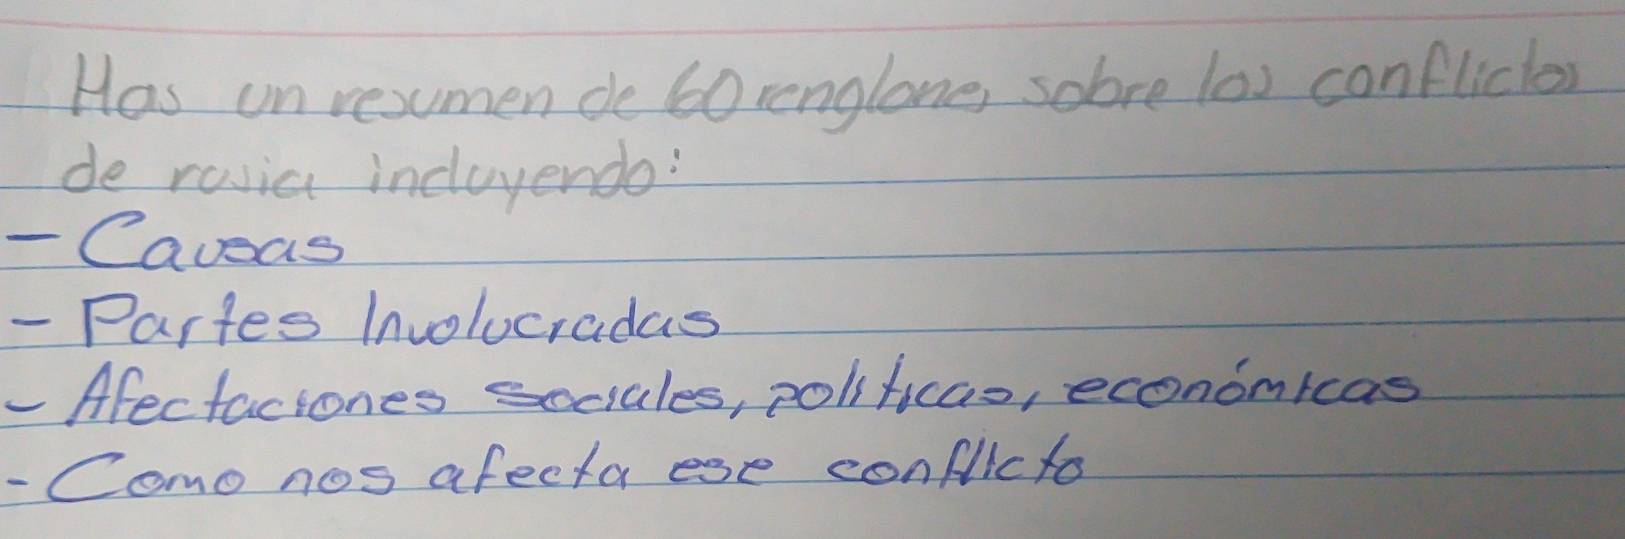 Has un resumen de 60 renglones sobre los conflictos
de rusia incluyendo:
- Causas
- Partes Involucradas
- Afectaciones sociales, políticas, económicas
- Como nos afecta ese conflicto